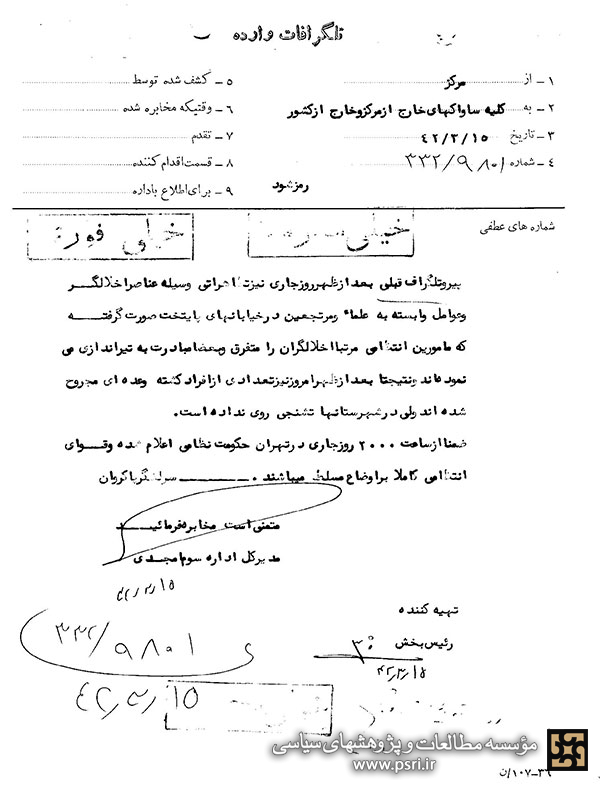 تلگرافات وارده
۱ – از مرکز
۲ – به کلیه ساواکهای خارج از مرکز و خارج از کشور
۳ – تاریخ ۴۲/۳/۱۵
۴ – شماره ۳۳۲/۹۸۰۱
۵ – کشف شده توسط
۶ – وقتیکه مخابره شده
۷ – تقدم
۸ – قسمت اقدام کننده
۹ – برای اطلاع باداره
رمز شود
شماره های عطفی
خیلی
خیلی فوری
پیرو تلگراف قبلی بعد از ظهر روز جاری نیز تظاهراتی وسیله عناصر اخلالگر
و عوامل وابسته به علماء و مرتجعین در خیابانهای پایتخت صورت گرفته
که مامورین انتظامی مرتبا اخلالگران را متفرق و بعضا مبادرت به تیراندازی می
نموده اند و نتیجتا بعد از ظهر امروز نیز تعدادی از افراد کشته و عده ای مجروح
شده اند ولی در شهرستانها تشنجی روی نداده است.
ضمنا از ساعت ۲۰۰۰ روز جاری در تهران حکومت نظامی اعلام شده و قوای
انتظامی کاملا بر اوضاع مسلط میباشند . سرلشگر پاکروان
متمنی است مخابره فرمائید
مدیر کل اداره سوم امجدی
۴۲/۳/۱۵
تهیه کننده
رئیس بخش
۴۲/۳/۱۵
۳۳۲/۹۸۰۱
۴۲/۳/۱۵
مؤسسه مطالعات و پژوهشهای سیاسی
www.psri.ir
۳۶–۱۰۷/ن